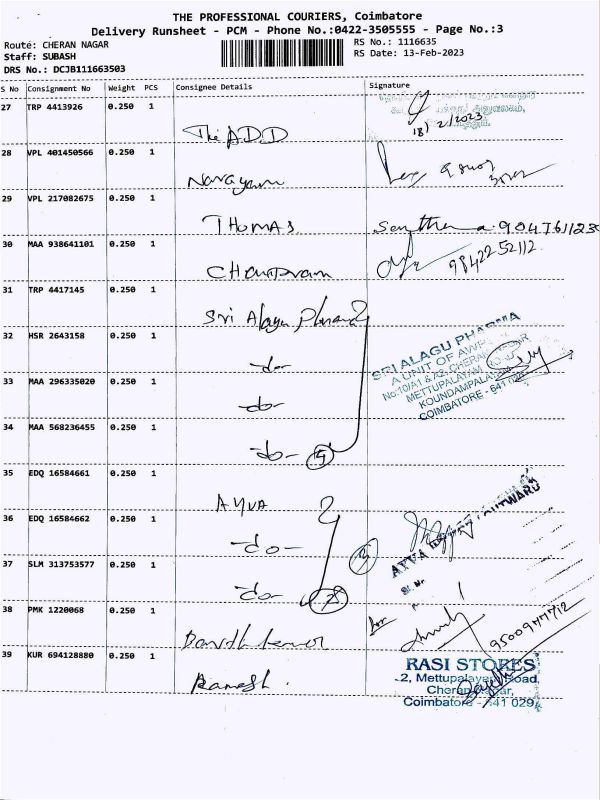 THE PROFESSIONAL COURIERS, Coimbatore
Delivery Runsheet - PCM - Phone No.:0422-3505555 - Page No.:3
Route: CHERAN NAGAR
Staff: SUBASH
DRS No.: DCJB111663503
RS No.: 1116635
RS Date: 13-Feb-2023
S No Consignment No Weight PCS Consignee Details Signature
27 TRP 4413926 0.250 1
The ADD
18/2/2023
28 VPL 401450566 0.250 1
Narayani
29 VPL 217082675 0.250 1
THOMAS
30 MAA 938641101 0.250 1
9842252112
31 TRP 4417145 0.250 1
Sri Alagu Pharma
32 HSR 2643158 0.250 1
-do-
33 MAA 296335020 0.250 1
-do-
34 MAA 568236455 0.250 1
-do-
SRI ALAGU PHARMA
A UNIT OF
No:10/A1 & A2, CHERAN
METTUPALAYAM
KOUNDAMPALAYAM
COIMBATORE - 641 029
35 EDQ 16584661 0.250 1
AYVA
36 EDQ 16584662 0.250 1
-do-
37 SLM 313753577 0.250 1
-do-
AYVA
38 PMK 1220068 0.250 1
for
9500977712
39 KUR 694128880 0.250 1
Ramesh.
RASI STORES
2, Mettupalayam Road,
Cheran Nagar,
Coimbatore - 641 029